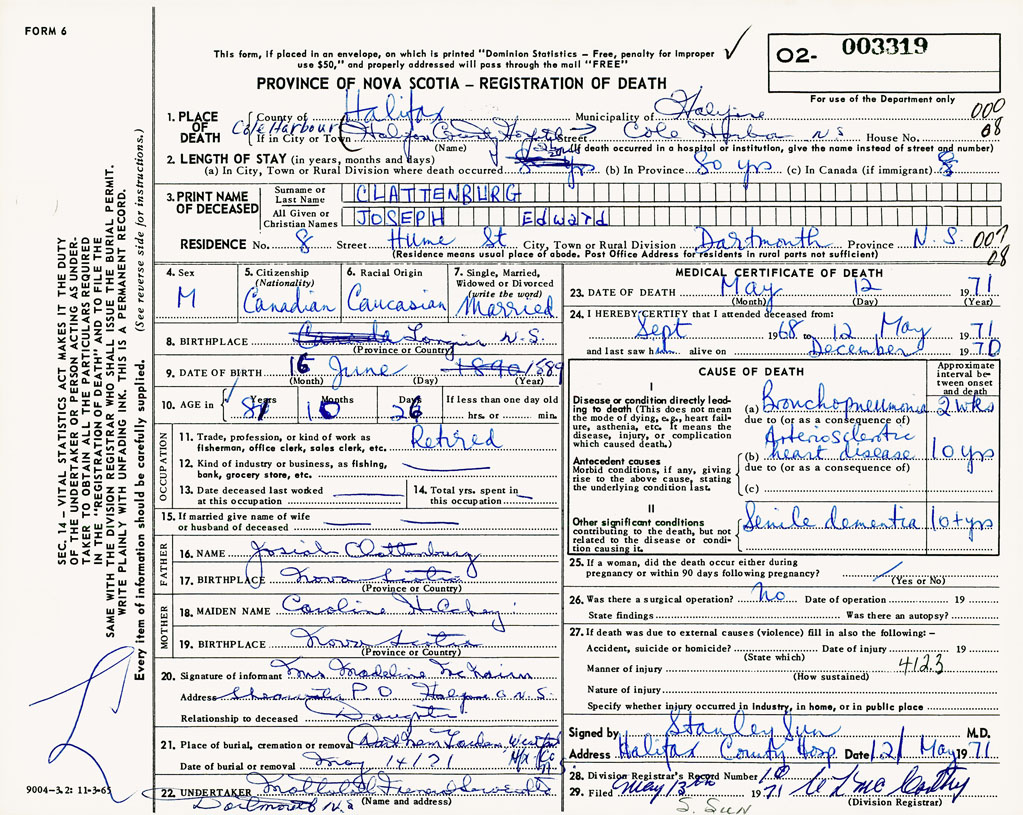 FORM 6
This form, if placed in an envelope, on which is printed "Dominion Statistics – Free, penalty for improper
use $50," and properly addressed will pass through the mail "FREE"
✓
O2- 003319
For use of the Department only
PROVINCE OF NOVA SCOTIA – REGISTRATION OF DEATH
1. PLACE OF DEATH
County of Halifax Municipality of Halifax 000
Cole Harbour If in City or Town Halifax County Hospital Street Cole Harbour N S House No. 08
(Name) (If death occurred in a hospital or institution, give the name instead of street and number)
2. LENGTH OF STAY (in years, months and days)
(a) In City, Town or Rural Division where death occurred yrs (b) In Province 80 yrs (c) In Canada (if immigrant)
3. PRINT NAME OF DECEASED
Surname or Last Name CLATTENBURG
All Given or Christian Names JOSEPH Edward
RESIDENCE No. 8 Street Hume St City, Town or Rural Division Dartmouth Province N.S. 007
(Residence means usual place of abode. Post Office Address for residents in rural parts not sufficient) 08
4. Sex M
5. Citizenship (Nationality) Canadian
6. Racial Origin Caucasian
7. Single, Married, Widowed or Divorced (write the word) Married
8. BIRTHPLACE Canada N.S.
(Province or Country)
9. DATE OF BIRTH 16 June 1890 1889
(Month) (Day) (Year)
10. AGE in Years 81 Months 10 Days 26 If less than one day old
hrs. or min.
OCCUPATION
11. Trade, profession, or kind of work as fisherman, office clerk, sales clerk, etc. Retired
12. Kind of industry or business, as fishing, bank, grocery store, etc.
13. Date deceased last worked at this occupation
14. Total yrs. spent in this occupation
15. If married give name of wife or husband of deceased
FATHER
16. NAME Josiah Clattenburg
17. BIRTHPLACE Nova Scotia
(Province or Country)
MOTHER
18. MAIDEN NAME Caroline
19. BIRTHPLACE Nova Scotia
(Province or Country)
20. Signature of informant Mrs Madeline
Address Shearwater P.O. Halifax Co N.S.
Relationship to deceased Daughter
21. Place of burial, cremation or removal
Date of burial or removal May 14/71
22. UNDERTAKER
Dartmouth N.S. (Name and address)
9004-3.2: 11-3-65
MEDICAL CERTIFICATE OF DEATH
23. DATE OF DEATH May 12 1971
(Month) (Day) (Year)
24. I HEREBY CERTIFY that I attended deceased from:
Sept 1968 12 May 1971
and last saw him alive on December 1970
CAUSE OF DEATH
Approximate interval between onset and death
I
Disease or condition directly leading to death (This does not mean the mode of dying, e.g., heart failure, asthenia, etc. It means the disease, injury, or complication which caused death.)
(a) Bronchopneumonia 2 wks
due to (or as a consequence of)
Antecedent causes
Morbid conditions, if any, giving rise to the above cause, stating the underlying condition last.
(b) Arteriosclerotic heart disease 10 yrs
due to (or as a consequence of)
(c)
II
Other significant conditions contributing to the death, but not related to the disease or condition causing it.
Senile dementia 10+yrs
25. If a woman, did the death occur either during
pregnancy or within 90 days following pregnancy?
(Yes or No)
26. Was there a surgical operation? No Date of operation 19
State findings Was there an autopsy?
27. If death was due to external causes (violence) fill in also the following: –
Accident, suicide or homicide? Date of injury 19
(State which)
Manner of injury 4123
(How sustained)
Nature of injury
Specify whether injury occurred in industry, in home, or in public place
Signed by Stanley Sun M.D.
Address Halifax County Hosp Date 12/ May 1971
28. Division Registrar's Record Number
29. Filed May 13th 1971
(Division Registrar)
S. SUN
SEC. 14 – VITAL STATISTICS ACT MAKES IT THE DUTY
OF THE UNDERTAKER OR PERSON ACTING AS UNDER-
TAKER TO OBTAIN ALL THE PARTICULARS REQUIRED
IN THE "REGISTRATION OF DEATH" AND TO FILE THE
SAME WITH THE DIVISION REGISTRAR WHO SHALL ISSUE THE BURIAL PERMIT.
WRITE PLAINLY WITH UNFADING INK. THIS IS A PERMANENT RECORD.
Every item of information should be carefully supplied. (See reverse side for instructions.)